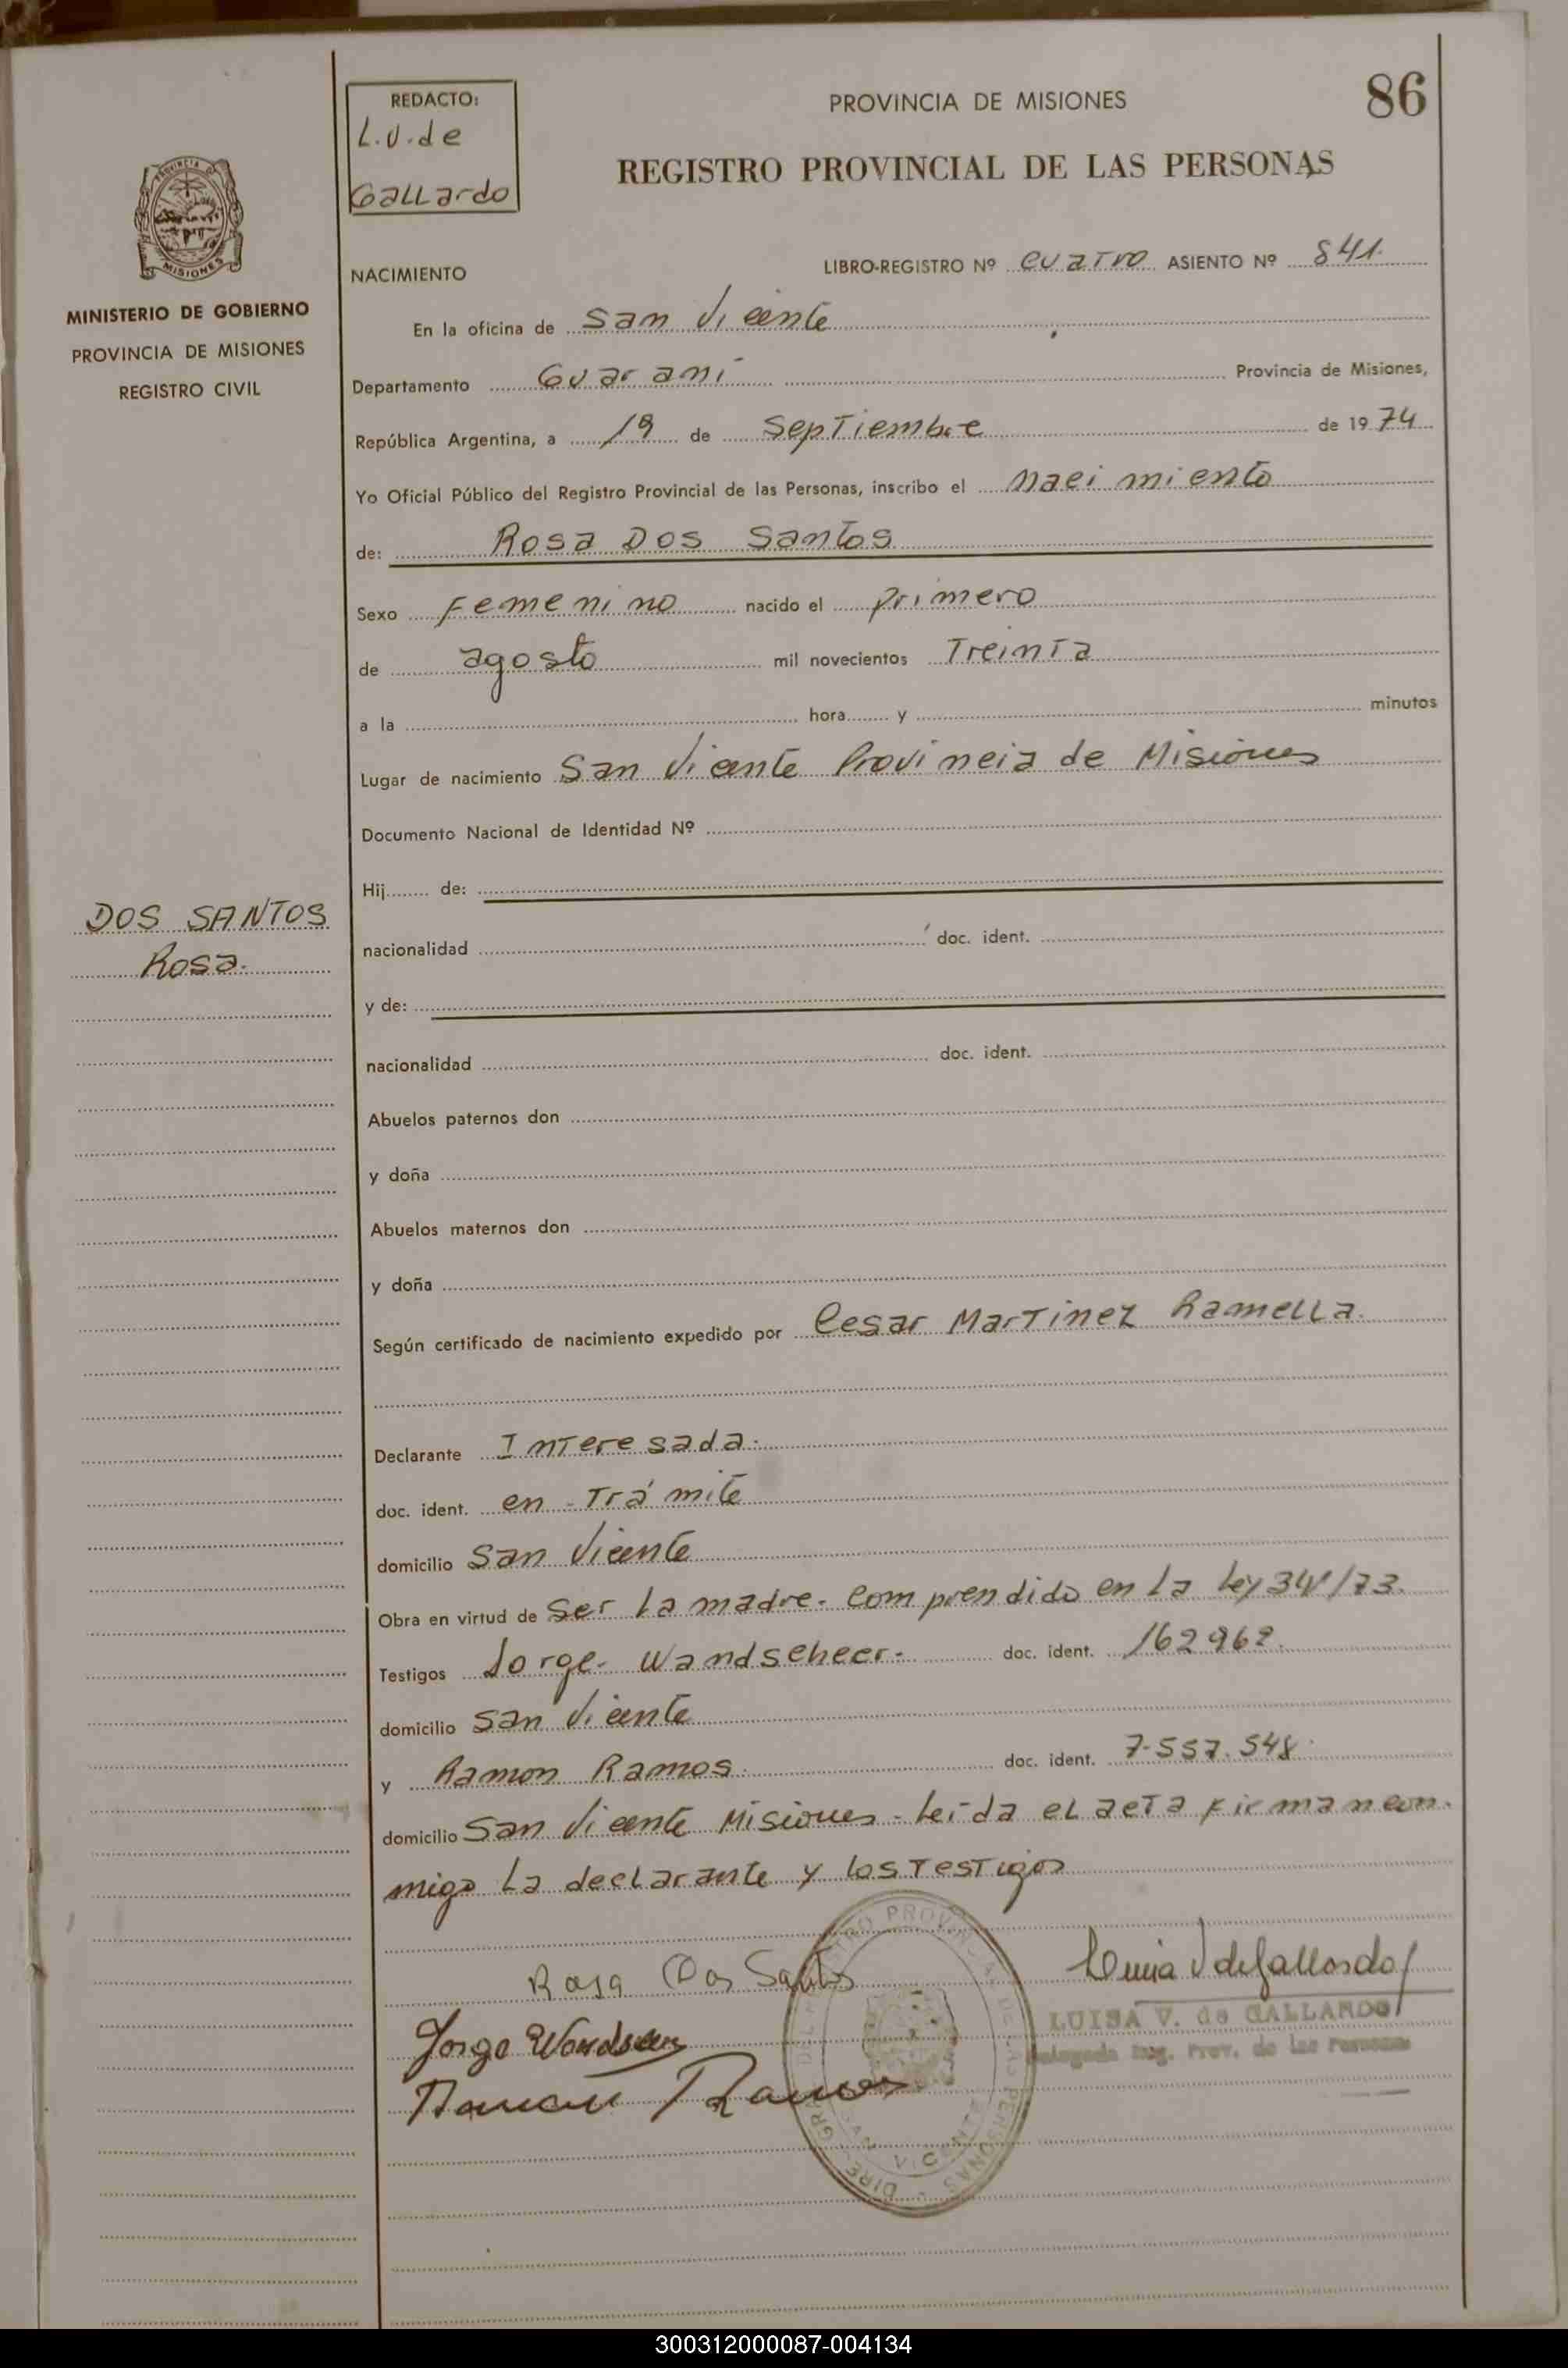 86
REDACTO:
L.V. de
Gallardo
PROVINCIA DE MISIONES
REGISTRO PROVINCIAL DE LAS PERSONAS
MISIONES
MINISTERIO DE GOBIERNO
PROVINCIA DE MISIONES
REGISTRO CIVIL
NACIMIENTO LIBRO-REGISTRO Nº cuatro ASIENTO Nº 841.
En la oficina de San Vicente
Departamento Guaraní Provincia de Misiones,
República Argentina, a 19 de Septiembre de 1974
Yo Oficial Público del Registro Provincial de las Personas, inscribo el nacimiento
de: Rosa Dos Santos
Sexo Femenino nacido el primero
de agosto mil novecientos Treinta
a la hora y minutos
Lugar de nacimiento San Vicente Provincia de Misiones
Documento Nacional de Identidad Nº
Hij de:
DOS SANTOS
Rosa.
nacionalidad doc. ident.
y de:
nacionalidad doc. ident.
Abuelos paternos don
y doña
Abuelos maternos don
y doña
Según certificado de nacimiento expedido por Cesar Martinez Ramella.
Declarante Interesada.
doc. ident. en-Trámite
domicilio San Vicente
Obra en virtud de ser la madre. comprendido en la Ley /73.
Testigos Jorge. Wandscheer. doc. ident. 162962.
domicilio San Vicente
y Ramon Ramos. doc. ident. 7.557.548.
domicilio San Vicente Misiones - Leída el acta firman con.
migo la declarante y los Testigos
Rosa Dos Santos
Jorge
Ramon Ramos
LUISA V. de GALLARDO
Delegada Reg. Prov. de las Personas
300312000087-004134